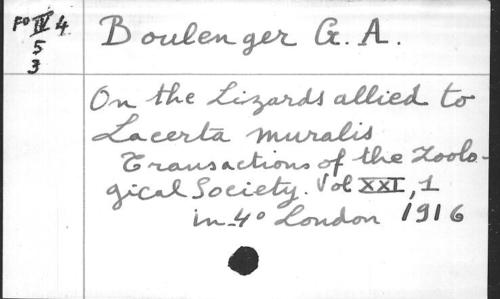 Fo IV 4 Boulenger G. A.
5
3
On the Lizards allied to
Lacerta muralis
Transactions of the Zoolo-
gical Society. Vol XXI, 1
in-4° London 1916